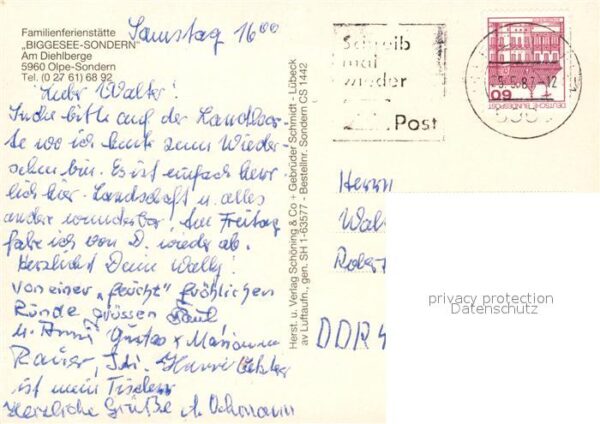 Familienferienstätte
„BIGGESEE-SONDERN"
Am Diehlberge
5960 Olpe-Sondern
Tel. (0 27 61) 68 92
Samstag 16⁰⁰
Lieber Walter!
Suche bitte auf der Landkar-
te wo ich heute zum Wieder-
sehen bin. Es ist einfach herr-
lich hier. Landschaft u. alles
andere wunderbar. Am Freitag
fahre ich von D. wieder ab.
Herzlichst Deine Wally!
von einer „feucht" fröhlichen
Runde grüssen Paul
u. Anni Gustav & Marianne
ist mein
Herzliche Grüße
Herst. u. Verlag Schöning & Co + Gebrüder Schmidt - Lübeck
av Luftaufn., gen. SH 1-63577 - Bestellnr. Sondern CS 1442
Schreib
mal
wieder
Post
DEUTSCHE BUNDESPOST
60
Herrn
Wal
Robert
DDR
privacy protection
Datenschutz